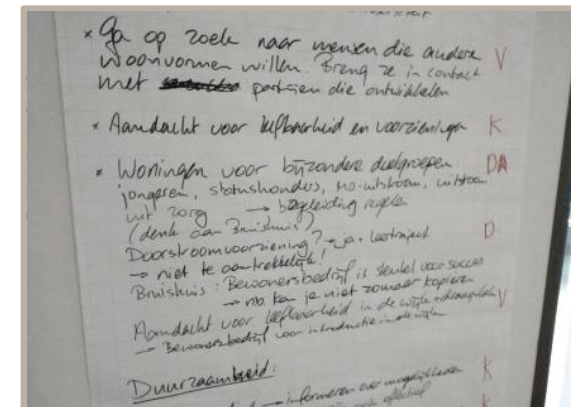 * Ga op zoek naar mensen die andere
woonvormen willen. Breng ze in contact V
met partijen die ontwikkelen
* Aandacht voor leefbaarheid en voorzieningen K
* Woningen voor bijzondere doelgroepen DA
jongeren, statushouders, MO-uitstroom, uitstroom
uit zorg → begeleiding regelen
(denk aan Bruishuis)
Doorstroomvoorziening? → ja + leertraject D
→ niet te aantrekkelijk!
Bruishuis: Bewonersbedrijf is sleutel voor succes
→ nb. kan je niet zomaar kopiëren
Aandacht voor leefbaarheid in de wijk + draagvlak V
→ Bewonersbedrijf voor introductie in de wijk
Duurzaamheid:
→ informeren over mogelijkheden K
K